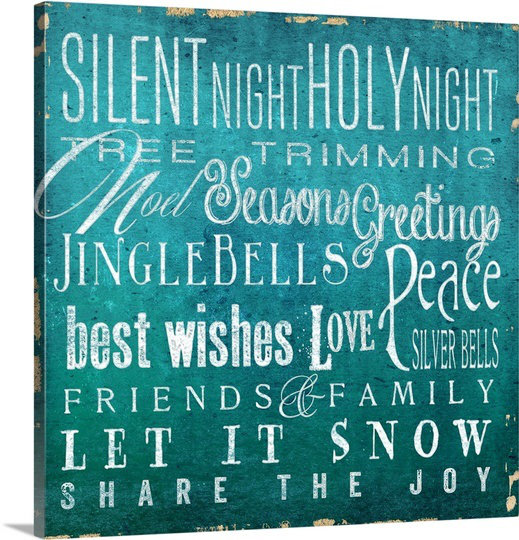 SILENT NIGHT HOLY NIGHT
TREE TRIMMING
Noel Seasons Greetings
JINGLE BELLS Peace
best wishes LOVE SILVER BELLS
FRIENDS & FAMILY
LET IT SNOW
SHARE THE JOY